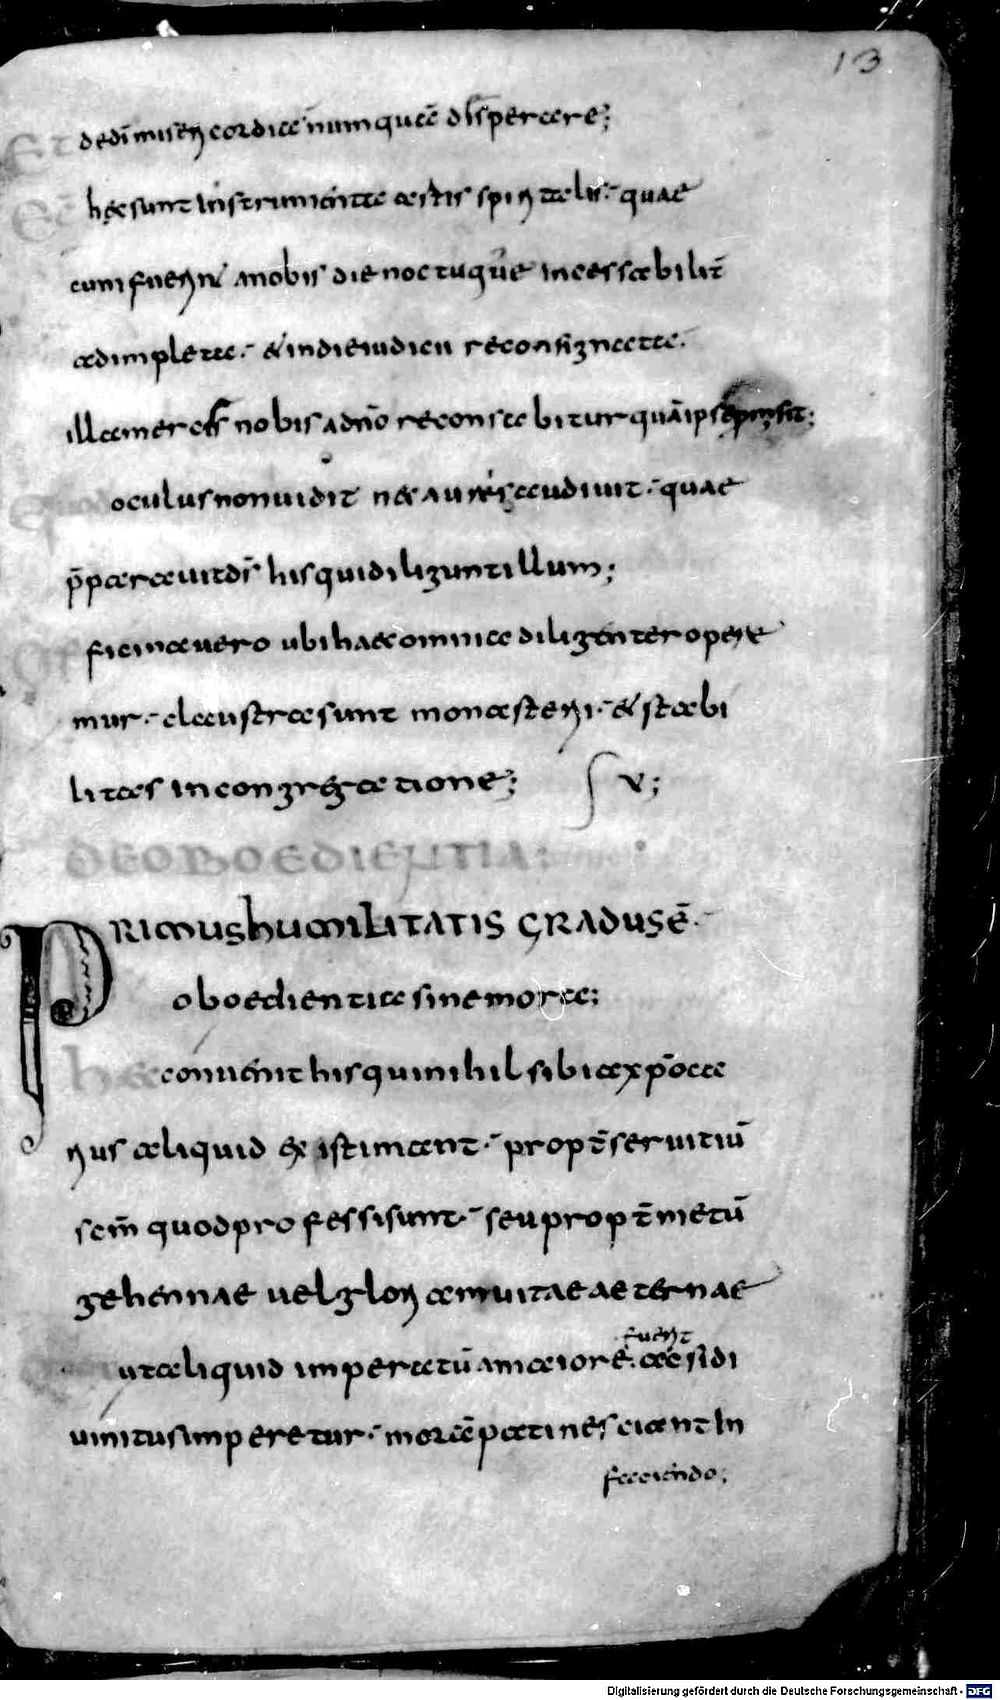 13
Et dedi misericordia numquā disperare;
Ecce hęc sunt instrumenta artis spiritalis· quae
cum fuerint a nobis die noctuque incessabilit̄
adimpleta· & in die iudicii reconsignata·
illa merces nobis a dn̄o reconsabitur quā ipse promisit;
Quod oculus non uidit nec auris audiuit· quae
p̄parauit ds̄ his qui diligunt illum;
Officina uero ubi haec omnia diligenter opere
mur· claustra sunt monasterii· & stabi
litas in congregatione; V;
DE OBOEDIENTIA:
PRIMUS HUMILITATIS GRADUS Ē·
oboedientia sine mora;
haec conuenit his qui nihil sibi a xp̄o ca
rius aliquid existimant· propt̄ seruitiū
scm̄ quod professi sunt· seu propt̄ metū
gehennae uel gloriam uitae aeternae
fuerit
ut aliquid imperatū a maiore· ac si di
uinitus imperetur· morā pati nesciant in
faciendo;
Digitalisierung gefördert durch die Deutsche Forschungsgemeinschaft - DFG